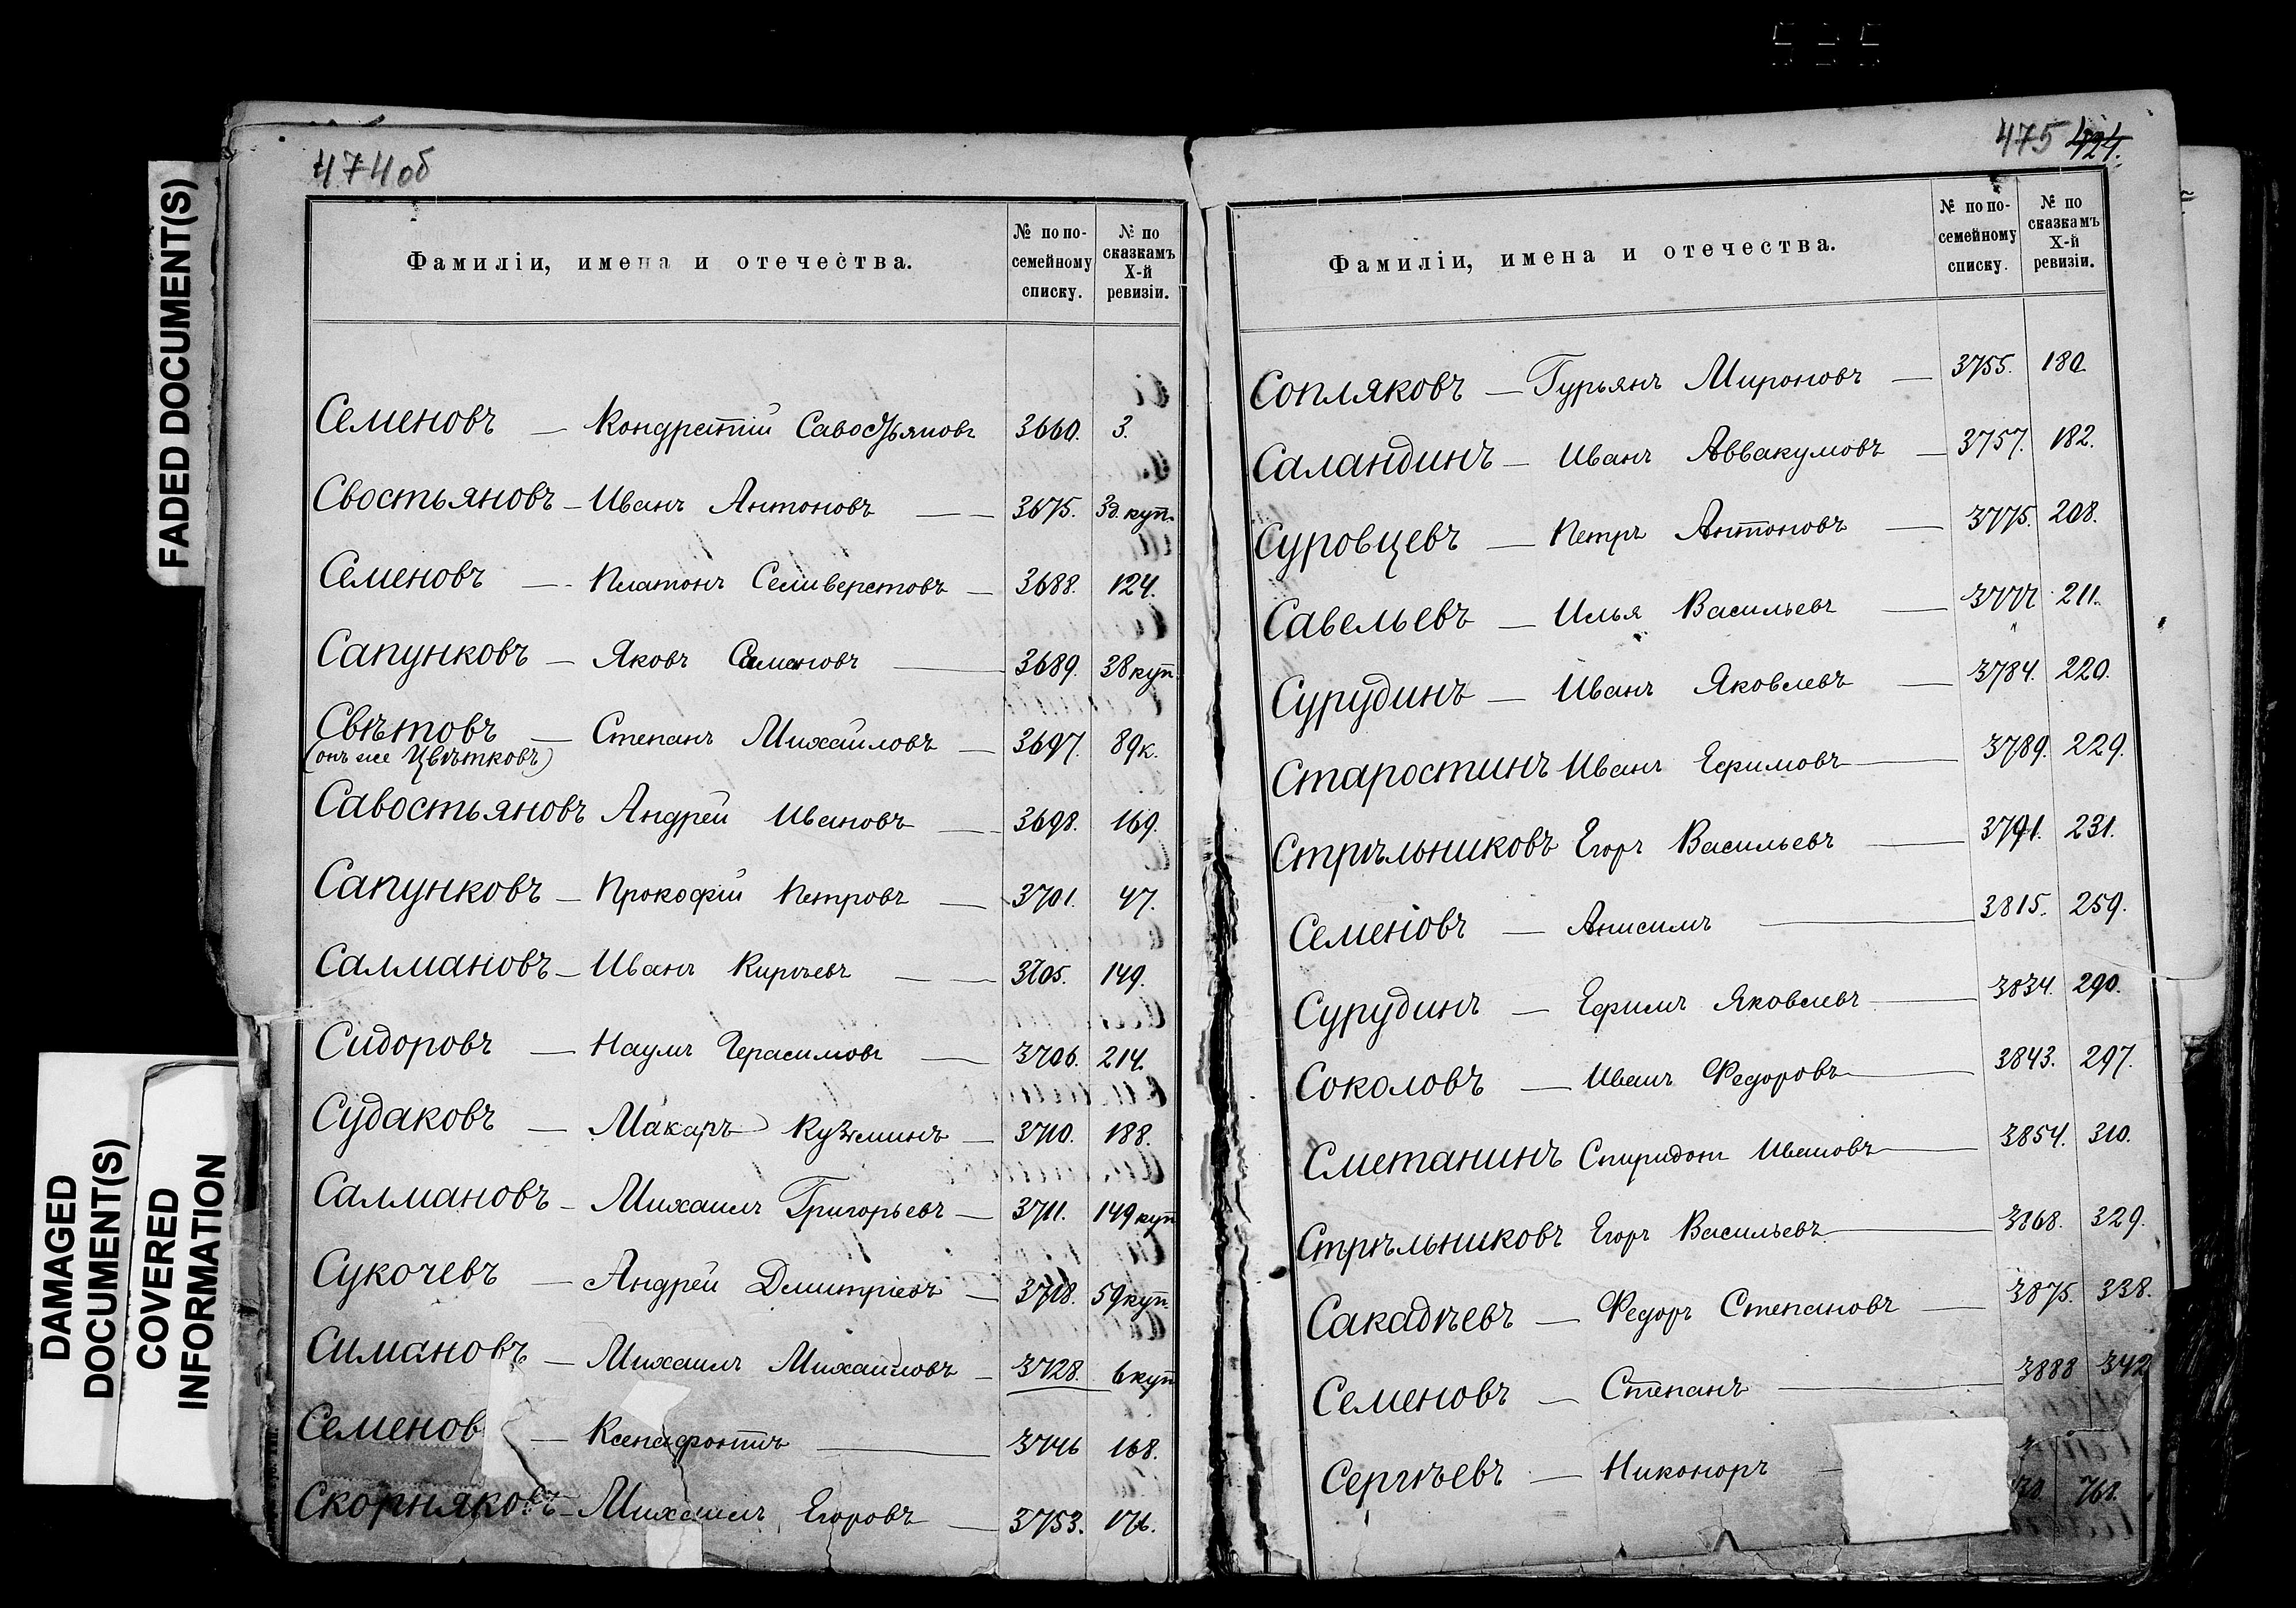 FADED DOCUMENT(S)
DAMAGED
DOCUMENT(S)
COVERED
INFORMATION
474 об
Фамиліи, имена и отечества.
№ по по-
семейному
списку.
№ по
сказкамъ
X-й
ревизіи.
Семеновъ — Кондратій Савостьяновъ 3660. 3.
Свостьяновъ — Иванъ Антоновъ — — 3675. 33. куп.
Семеновъ — Платонъ Селиверстовъ — 3688. 124.
Сапунковъ — Яковъ Семеновъ — 3689. 38 куп.
Свѣтовъ — Степанъ Михайловъ — 3697. 89 к.
(онъ же Цвѣтковъ)
Савостьяновъ Андрей Ивановъ — 3698. 169.
Сапунковъ — Прокофій Петровъ — 3701. 47.
Салмановъ — Иванъ Кирѣевъ — — 3705. 149.
Сидоровъ — Наумъ Герасимовъ — 3706. 214.
Судаковъ — Макаръ Кузьминъ — 3710. 188.
Салмановъ — Михаилъ Григорьевъ — 3711. 149 куп
Сукочевъ — Андрей Дмитріевъ — 3718. 59 куп.
Симановъ — Михаилъ Михайловъ — 3728. 6 куп
Семенов — Ксенофонтъ — 3746 168.
Скорняковъ — Михаилъ Егоровъ — 3753. 176.
475 424.
Фамиліи, имена и отечества.
№ по по-
семейному
списку.
№ по
сказкамъ
X-й
ревизіи.
Сопляковъ — Гурьянъ Мироновъ — 3755. 180
Саландинъ — Иванъ Аввакумовъ — 3757. 182.
Суровцевъ — Петръ Антоновъ — 3775. 208.
Савельевъ — Илья Васильевъ — 3777 211.
Сурудинъ — Иванъ Яковлевъ — 3784. 220.
Старостинъ Иванъ Ефимовъ — 3789. 229.
Стрѣльниковъ Егоръ Васильевъ — 3791. 231.
Семеновъ — Анисимъ — 3815. 259.
Сурудинъ — Ефимъ Яковлевъ — 3834. 290.
Соколовъ — Иванъ Федоровъ — 3843. 297.
Сметанинъ Спиридонъ Ивановъ — 3854. 310.
Стрѣльниковъ Егоръ Васильевъ — 3868. 329.
Сакадѣевъ — Федоръ Степановъ — 3875. 338.
Семеновъ — Степанъ — 3888 342
Сергѣевъ — Никоноръ — 761.